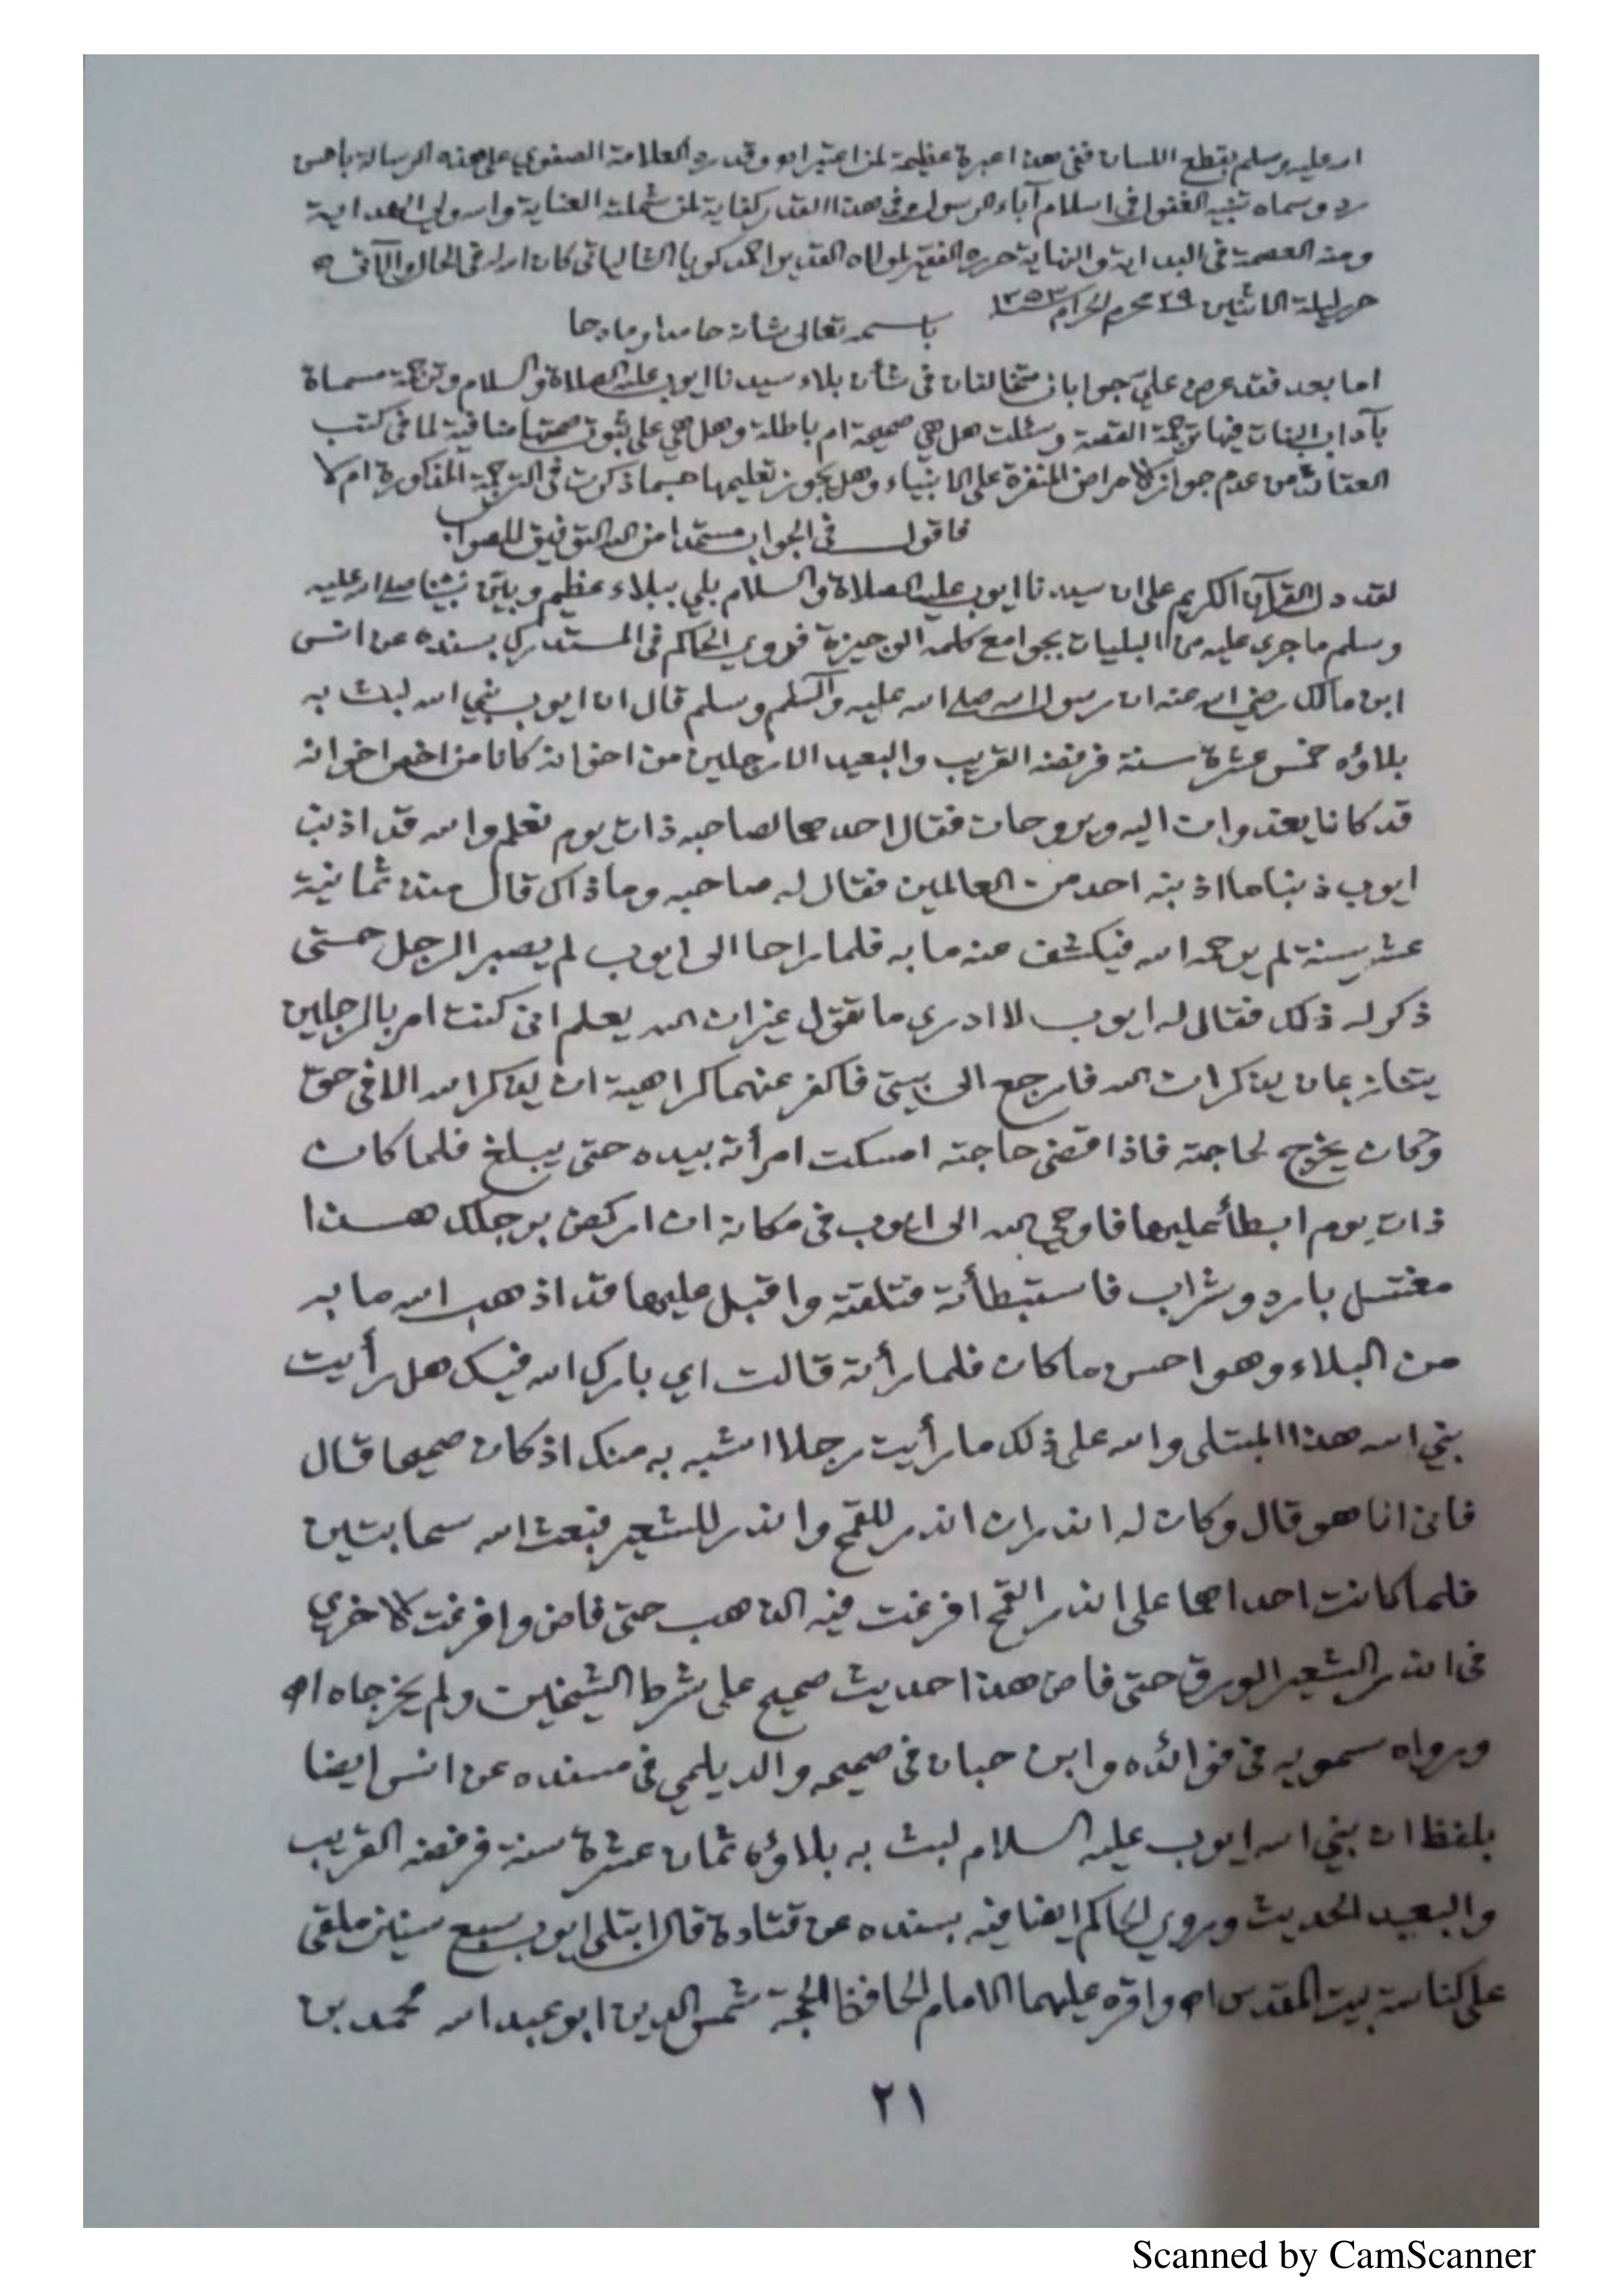 الله عليه وسلم بقطع اللسان ففي هذا عبرة عظيمة لمن اعتبر اه وقد رد العلامة الصفوي على هذه الرسالة باحسن
رد وسماه تنبيه الغفول في اسلام آباء الرسول وفي هذا القدر كفاية لمن شملته العناية والله ولي الهداية
ومنه العصمة في البداية والنهاية حرره الفقير لمولاه القدير احمد كويا الشالياتي كان الله له في الحال والآتي ه
حرر ليلة الاثنين ٢٩ محرم الحرام ١٣٥٣
باسمه تعالى شأنه حامدا ومادحا
اما بعد فقد عرض علي جوابان متخالفان في شأن بلاء سيدنا ايوب عليه الصلاة والسلام وترجمة مسماة
بآداب البنات فيها ترجمة القصة وسئلت هل هي صحيحة ام باطلة وهل هي على ثبوت صحتها منافية لما في كتب
العقائد من عدم جواز الامراض المنفرة على الانبياء وهل يجوز تعليمها حسبما ذكرت في الترجمة المذكورة ام لا
فاقول في الجواب مستمدا من الله التوفيق للصواب
لقد دل القرآن الكريم على ان سيدنا ايوب عليه الصلاة والسلام بلي ببلاء عظيم وبين نبينا صلى الله عليه
وسلم ما جرى عليه من البليات بجوامع كلمه الوجيزة فروى الحاكم في المستدرك بسنده عن انس
ابن مالك رضي الله عنه ان رسول الله صلى الله عليه وآله وسلم قال ان ايوب نبي الله لبث به
بلاؤه خمس عشرة سنة فرفضه القريب والبعيد الا رجلين من اخوانه كانا من اخص اخوانه
قد كانا يغدوان اليه ويروحان فقال احدهما لصاحبه ذات يوم نعلم والله قد اذنب
ايوب ذنبا ما اذنبه احد من العالمين فقال له صاحبه وما ذاك قال منذ ثمانية
عشر سنة لم يرحمه الله فيكشف عنه ما به فلما راحا الى ايوب لم يصبر الرجل حتى
ذكر له ذلك فقال له ايوب لا ادري ما تقول غير ان الله يعلم اني كنت امر بالرجلين
يتنازعان يذكران الله فارجع الى بيتي فاكفر عنهما كراهية ان يذكر الله الا في حق
وكان يخرج لحاجته فاذا قضى حاجته امسكت امرأته بيده حتى يبلغ فلما كان
ذات يوم ابطأ عليها فاوحى الله الى ايوب في مكانه ان اركض برجلك هذا
مغتسل بارد وشراب فاستبطأته فتلقته واقبل عليها قد اذهب الله ما به
من البلاء وهو احسن ما كان فلما رأته قالت اي بارك الله فيك هل رأيت
نبي الله هذا المبتلى والله على ذلك ما رأيت رجلا اشبه به منك اذ كان صحيحا قال
فاني انا هو قال وكان له اندران اندر للقمح واندر للشعير فبعث الله سحابتين
فلما كانت احداهما على اندر القمح افرغت فيه الذهب حتى فاض وافرغت الاخرى
في اندر الشعير الورق حتى فاض هذا حديث صحيح على شرط الشيخين ولم يخرجاه اه
ورواه سمويه في فوائده وابن حبان في صحيحه والديلمي في مسنده عن انس ايضا
بلفظ ان نبي الله ايوب عليه السلام لبث به بلاؤه ثمان عشرة سنة فرفضه القريب
والبعيد الحديث وروى الحاكم ايضا فيه بسنده عن قتادة قال ابتلي ايوب سبع سنين ملقى
على كناسة بيت المقدس اه واقره عليهما الامام الحافظ الحجة شمس الدين ابو عبد الله محمد بن
٢١
Scanned by CamScanner